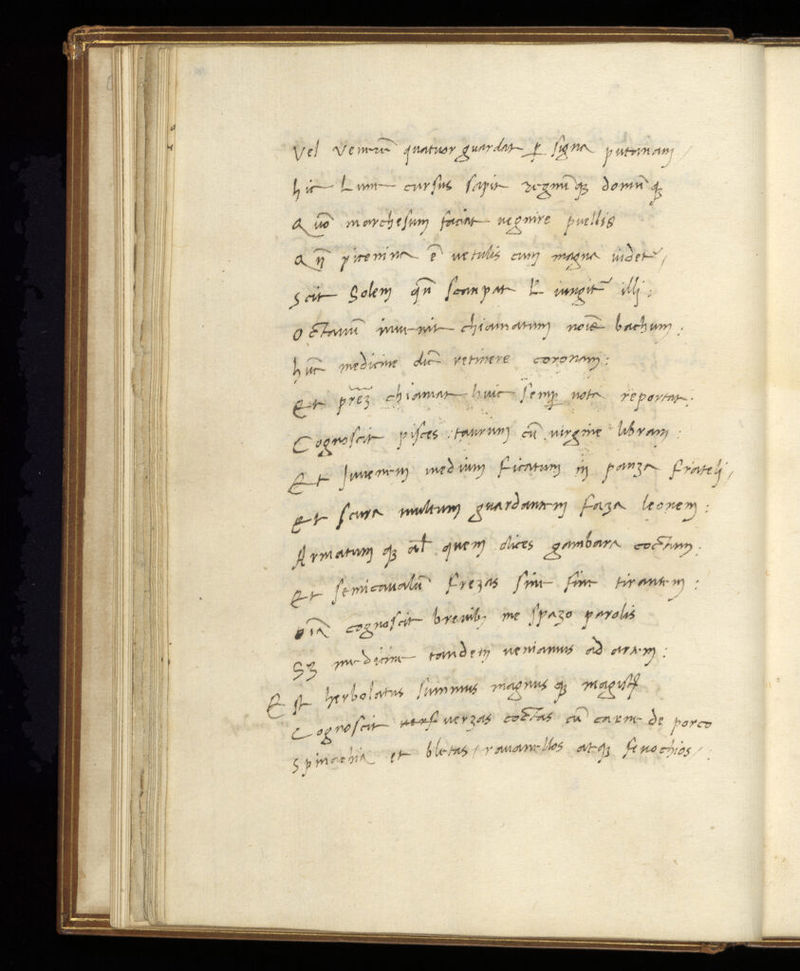 Vel Venerē quatuor guardat ꝑ signa putanam /
hic Lune cursus sapit regnūqꝫ domūqꝫ
Quō marchesum faciat uegnire puellis
Qn̄ picenina ē uetulis cum magna uidet᷑ /
Scit Solem qn̄ scampat & iungit᷑ illi :
Octauū inuenit chiamatum noīe bachum :
hūc medicine dic̄ retinere coronam :
Et chiamat huic semꝑ nota reportat .
Cognoscit pisces : taurum cū uirgine libram :
Et Juuenem medium ficatum in panza frateli /
Et scura multum guardantem faza leonem :
Armatum qꝫ al̄ quem dices gambara coctum .
Et semicaualū frezas sine fine tirantem :
oīa cognoscit breuibꝫ me spazo parolis
Sꝫ medicine tandem ueniamus ad artem :
Est herbolatus summus magnus qꝫ magistꝝ
Cognoscit uerzas coctas cū carne de porco
Spinachia et bletas / rauanellos atqꝫ fenochios / .